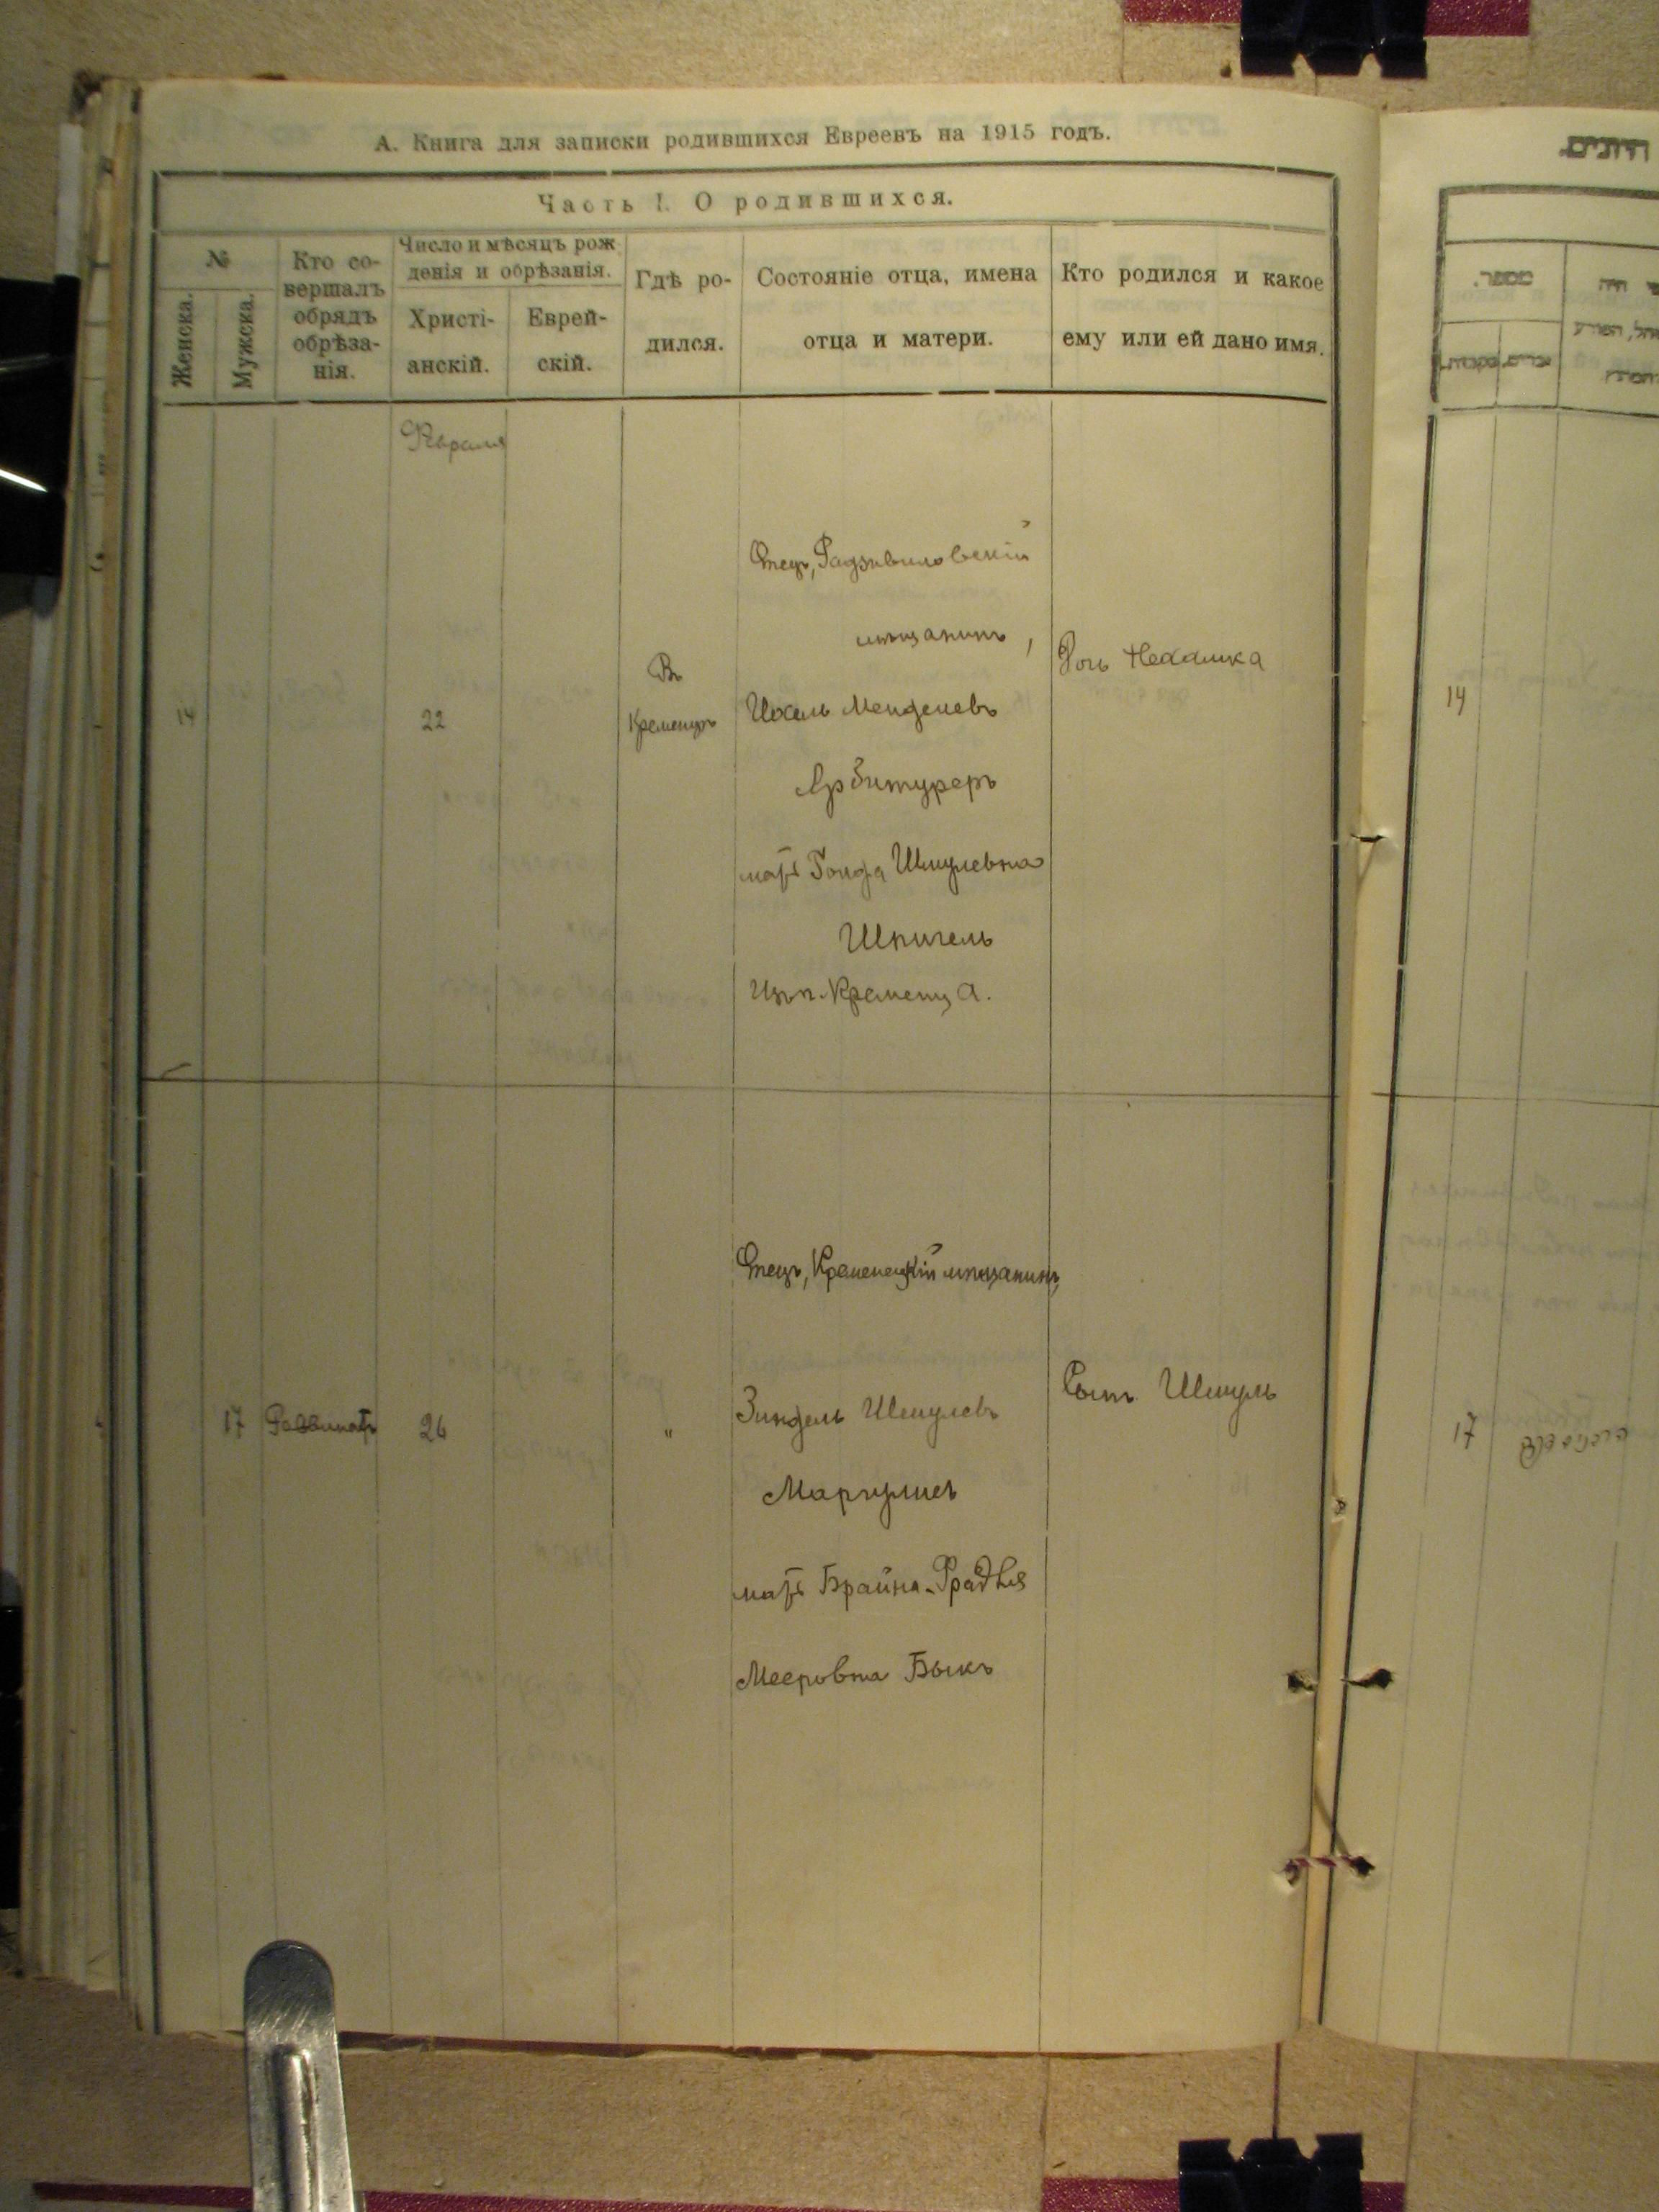 А. Книга для записки родившихся Евреевъ на 1915 годъ.
Часть I. О родившихся.
№
Женска.
Мужска.
Кто со-
вершалъ
обрядъ
обрѣза-
нія.
Число и мѣсяцъ рож
денія и обрѣзанія.
Христі-
анскій.
Еврей-
скій.
Гдѣ ро-
дился.
Состояніе отца, имена
отца и матери.
Кто родился и какое
ему или ей дано имя.
14
22
Въ
Кременцѣ
Отецъ, Радзивиловскій
мѣщанинъ,
Менделевъ
мать Шмулевна
Шпигель
Кременца.
Дочь Нехамка
17
26
"
Отецъ, Кременецкій мѣщанинъ,
Зиндель Шмулевъ
Маргулисъ
мать Брайна-Фрадля
Мееровна Быкъ
Сынъ Шмуль
14
17